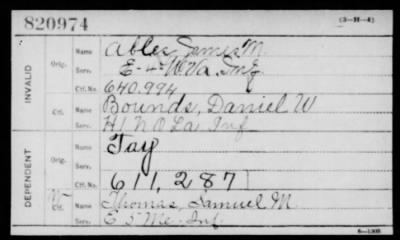 820974 (3-H-4)
INVALID
Orig. Name Ables, James M.
Serv. E-4-W.Va. Inf.
Ctf. No. 640.994
Ctf. Name Bounds, Daniel W
Serv. H 1 N O La Inf
DEPENDENT
Orig. Name Tay
Serv.
Ctf. No. 611,287
Ctf. Name Thomas, Samuel M.
Serv. E 5" Me. Inf.